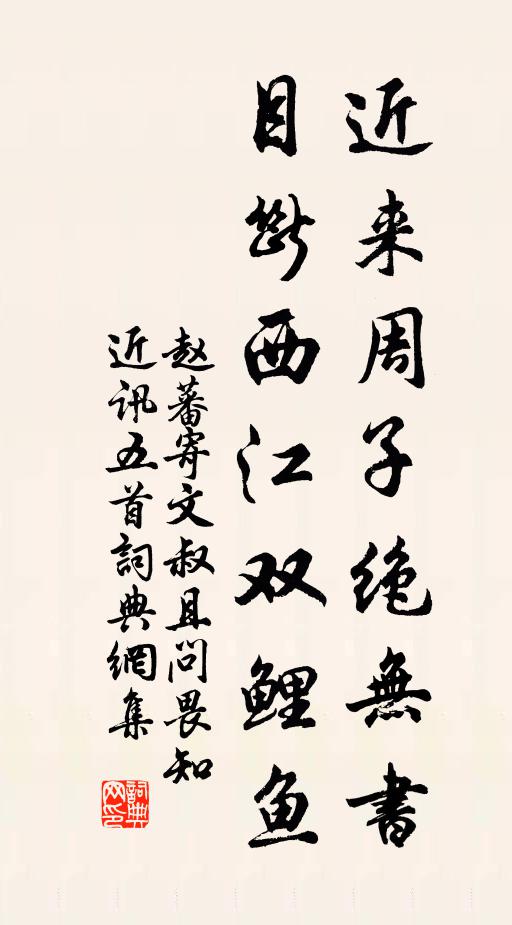 近来周子绝無書
目断西江双鲤鱼
赵蕃寄文叔且問畏知
近讯五首詞典網集
詞典网印